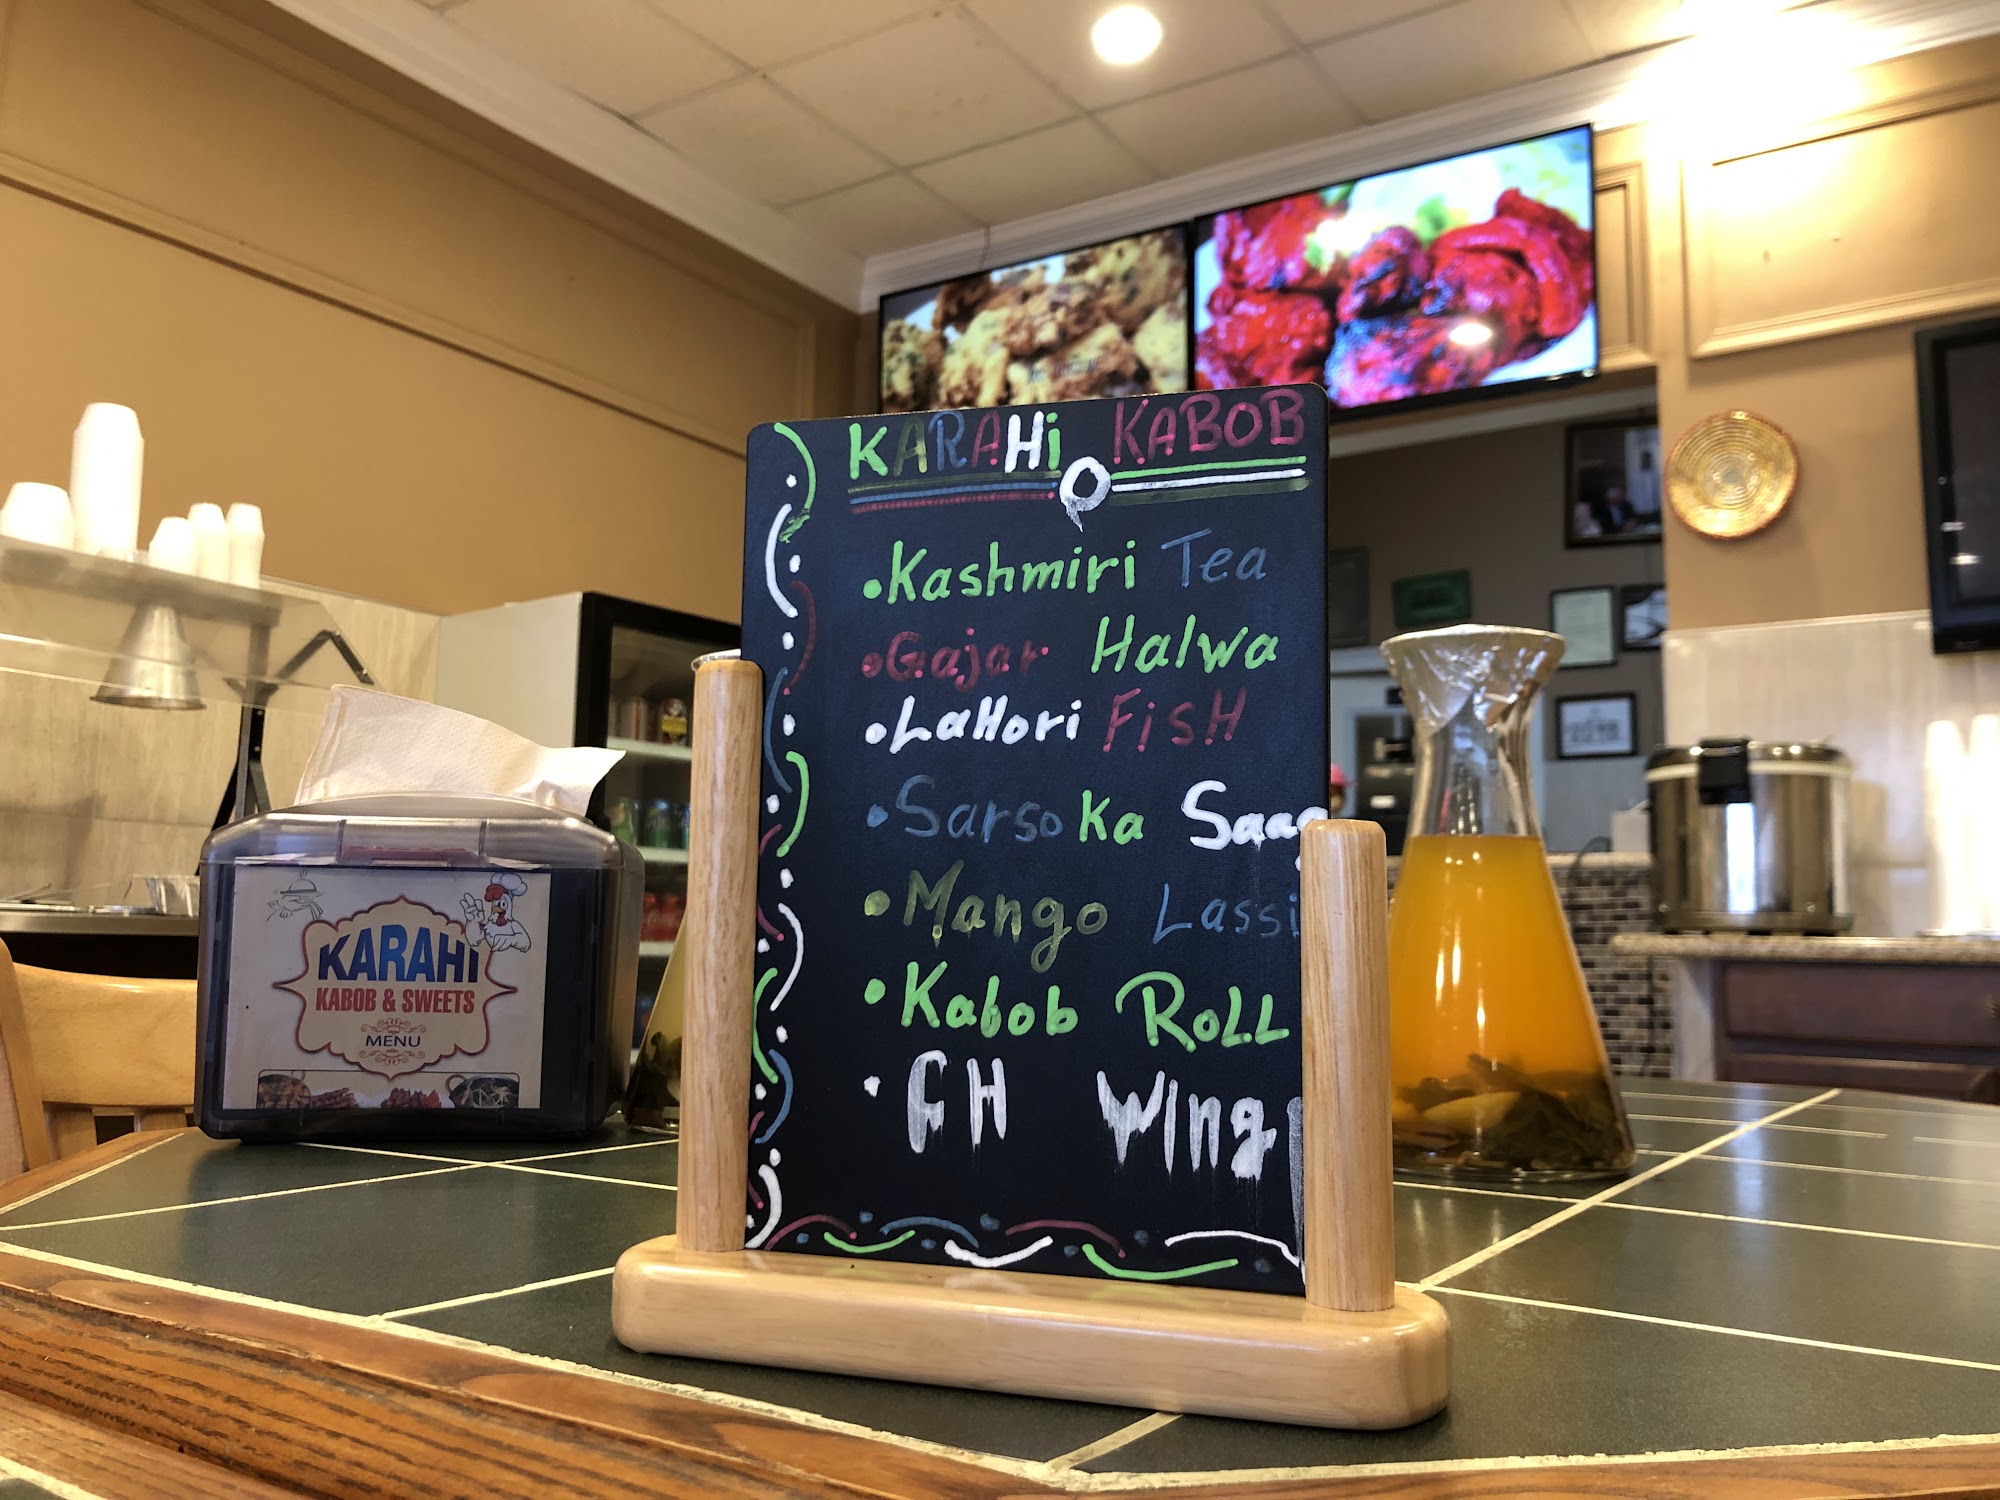 KARAHi KABOB
• Kashmiri Tea
• Gajar Halwa
• LaHori FiSH
• Sarso Ka Saag
• Mango Lassi
• Kabob RoLL
• CH Wing
KARAHI
KABOB & SWEETS
MENU